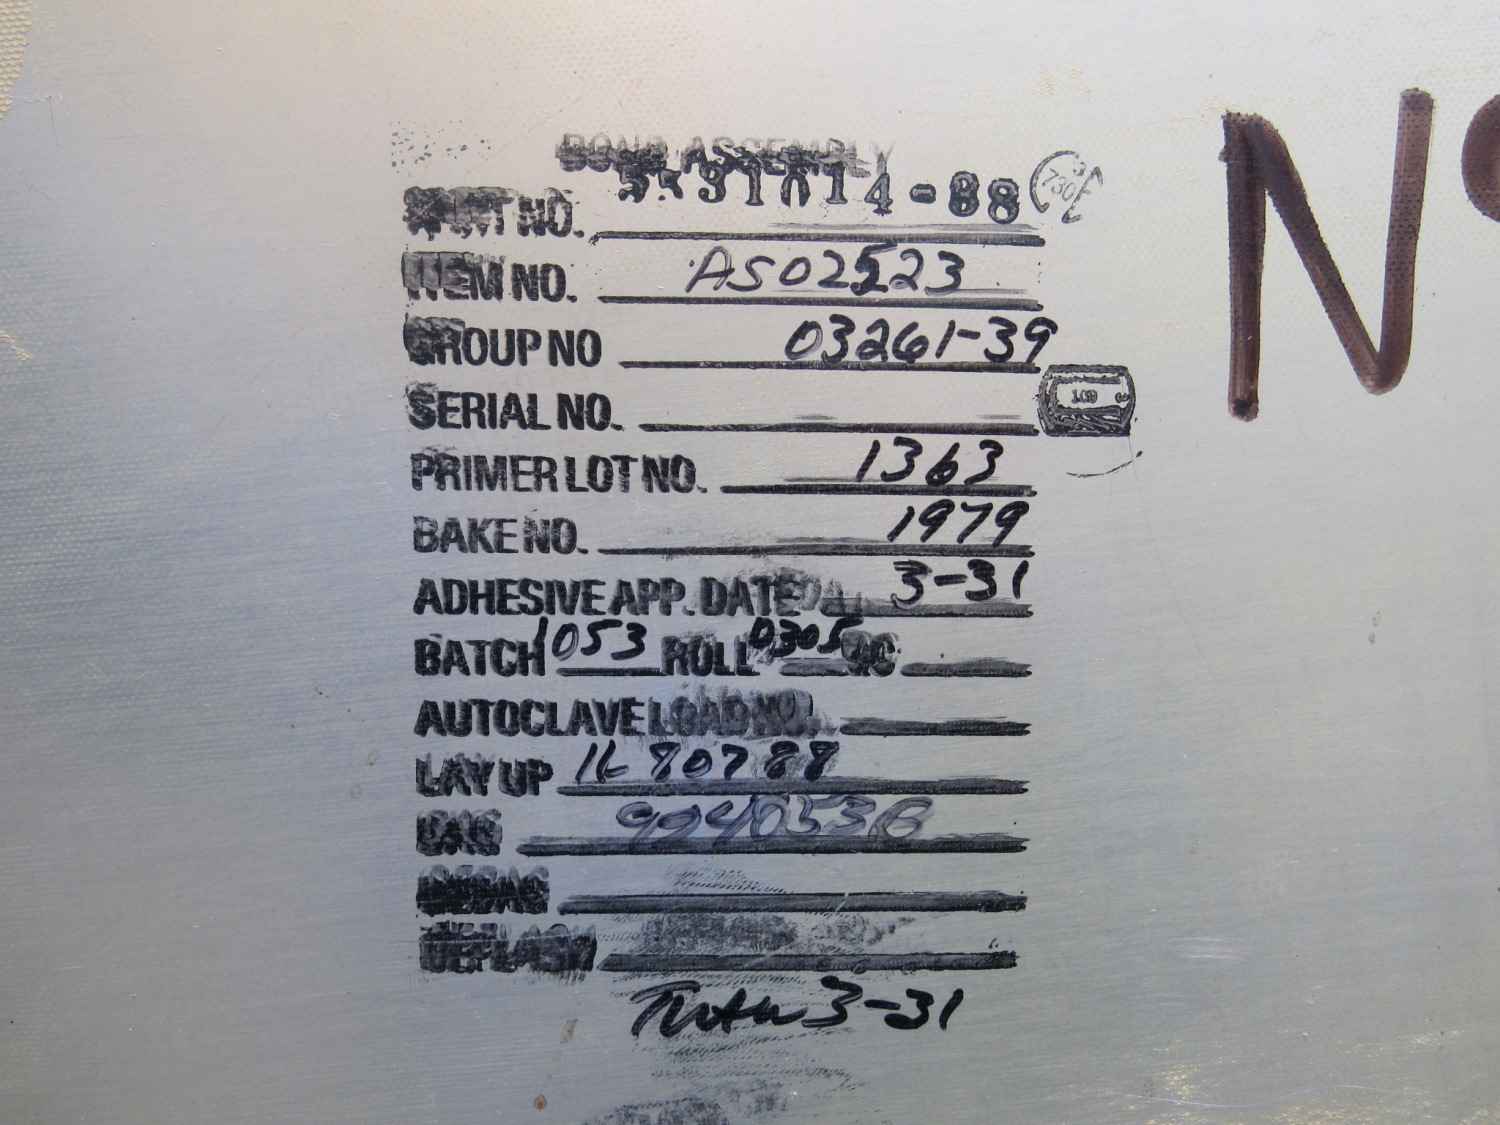 BOND ASSEMBLY
PART NO. 14-88
730
ITEM NO. AS02523
GROUP NO 03261-39
SERIAL NO.
109
PRIMER LOT NO. 1363
BAKE NO. 1979
ADHESIVE APP. DATE 3-31
BATCH 1053 ROLL 0305 QC
AUTOCLAVE LOAD NO.
LAY UP 1680788
BAG 9940533B
DEBAG
DEFLASH
3-31
N